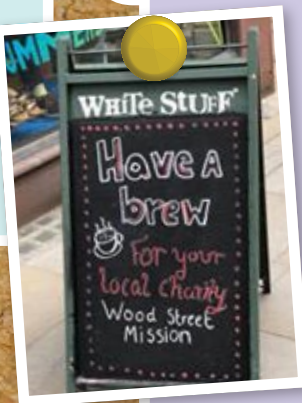 WHiTe STUFF
Have A
brew
For your
local charity
Wood Street
Mission